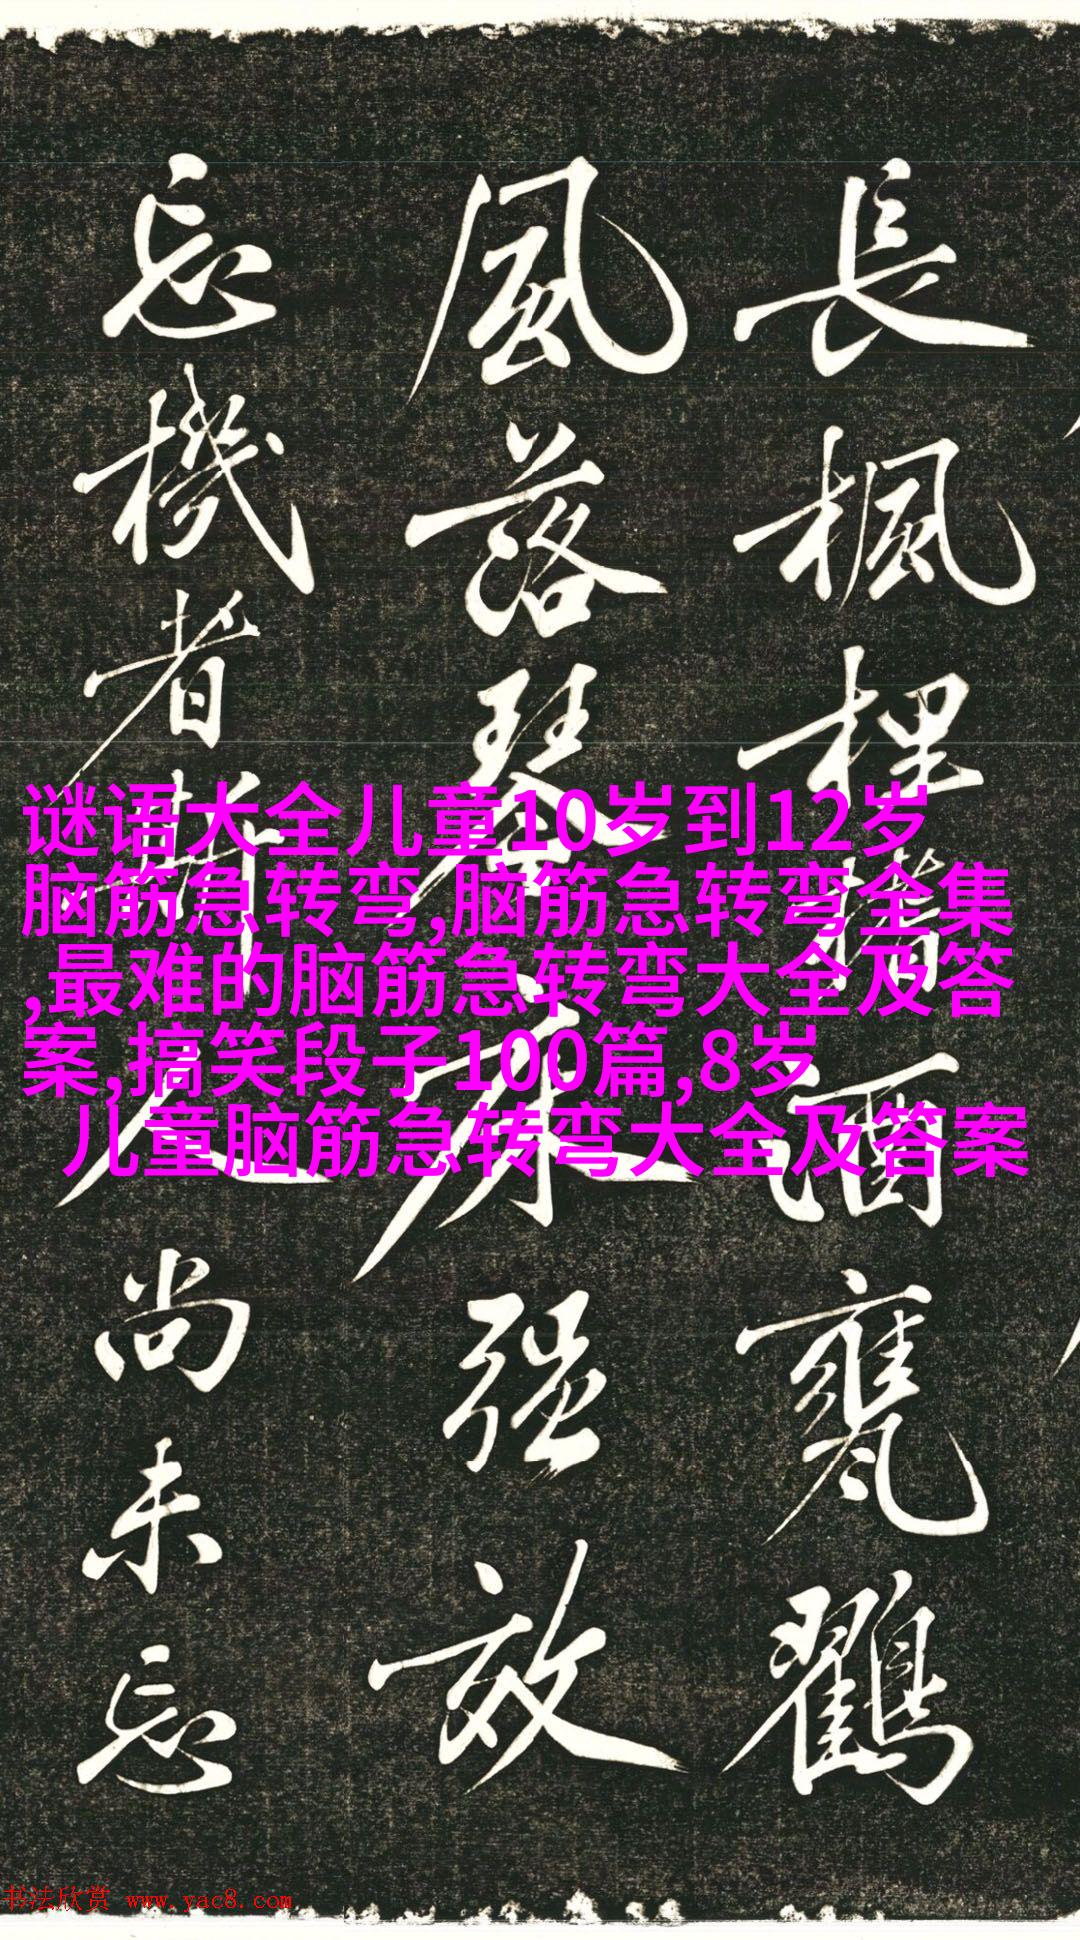 長楓酒甕鸛
風落琴床强效
忘機者斯人尚未忘
谜语大全儿童10岁到12岁
脑筋急转弯,脑筋急转弯全集
,最难的脑筋急转弯大全及答
案,搞笑段子100篇,8岁
儿童脑筋急转弯大全及答案
书法欣赏 www.yac8.com